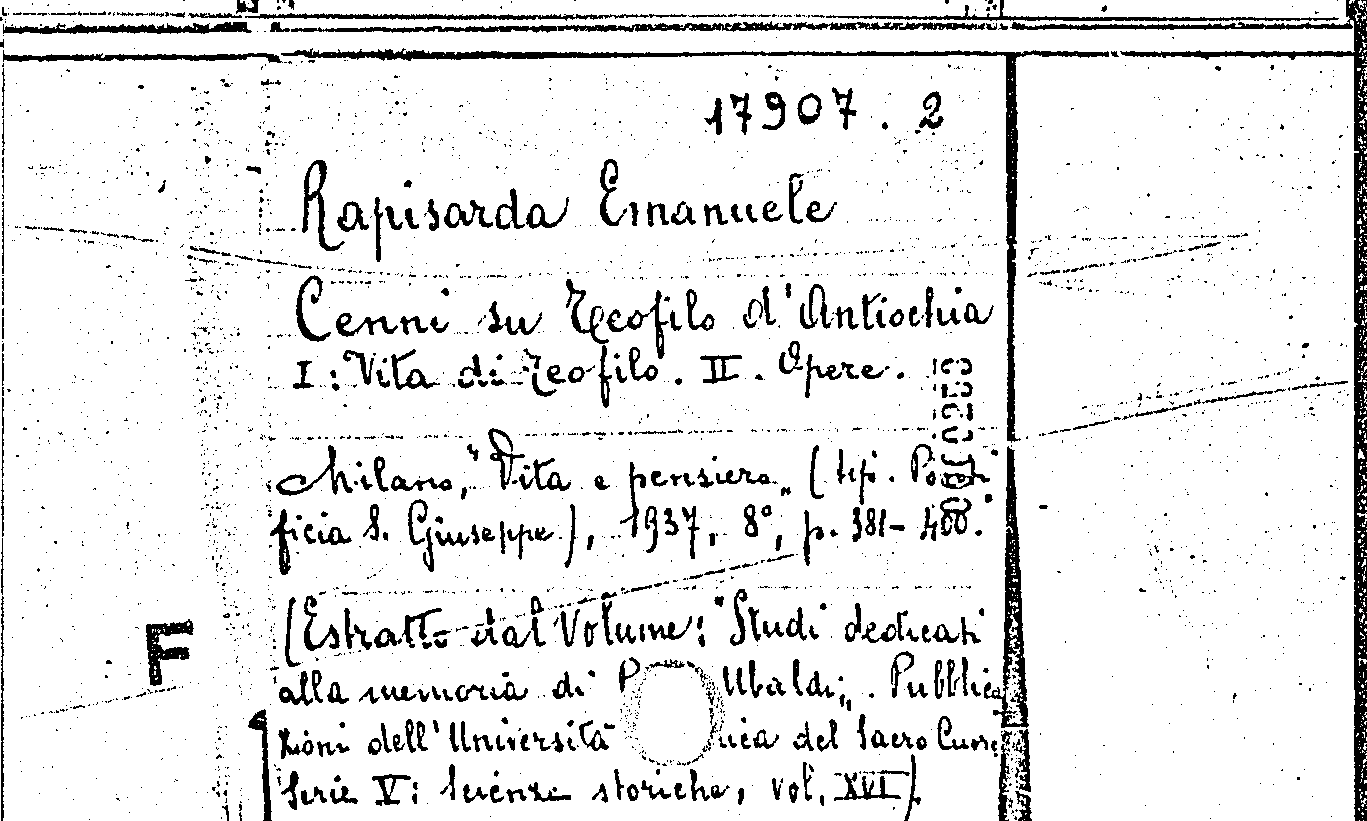 17907.2
Rapisarda Emanuele
Cenni su Teofilo d'Antiochia
I: Vita di Teofilo. II. Opere.
Milano, "Vita e pensiero" (tip. Ponti
ficia S. Giuseppe), 1937, 8°, p. 381-400.
(Estratto dal Volume: "Studi dedicati
F
alla memoria di P Ubaldi". Pubblica
zioni dell'Università del Sacro Cuore
Serie V: Scienze storiche, vol. XVI).